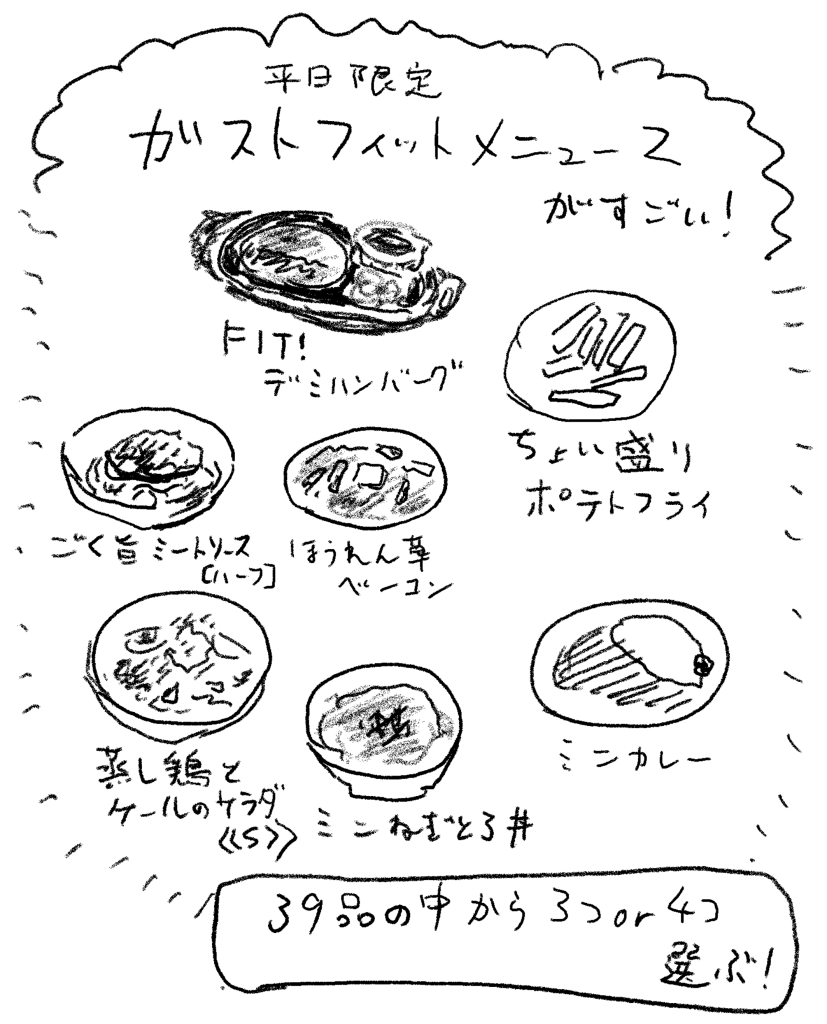 平日限定
ガストフィットメニューズ
がすごい!
FIT!
デミハンバーグ
ちょい盛り
ポテトフライ
ごく旨ミートソース
[ハーフ]
ほうれん草
ベーコン
蒸し鶏と
ケールのサラダ
<<S>>
ミニねぎとろ丼
ミニカレー
39品の中から3つor4つ
選ぶ!